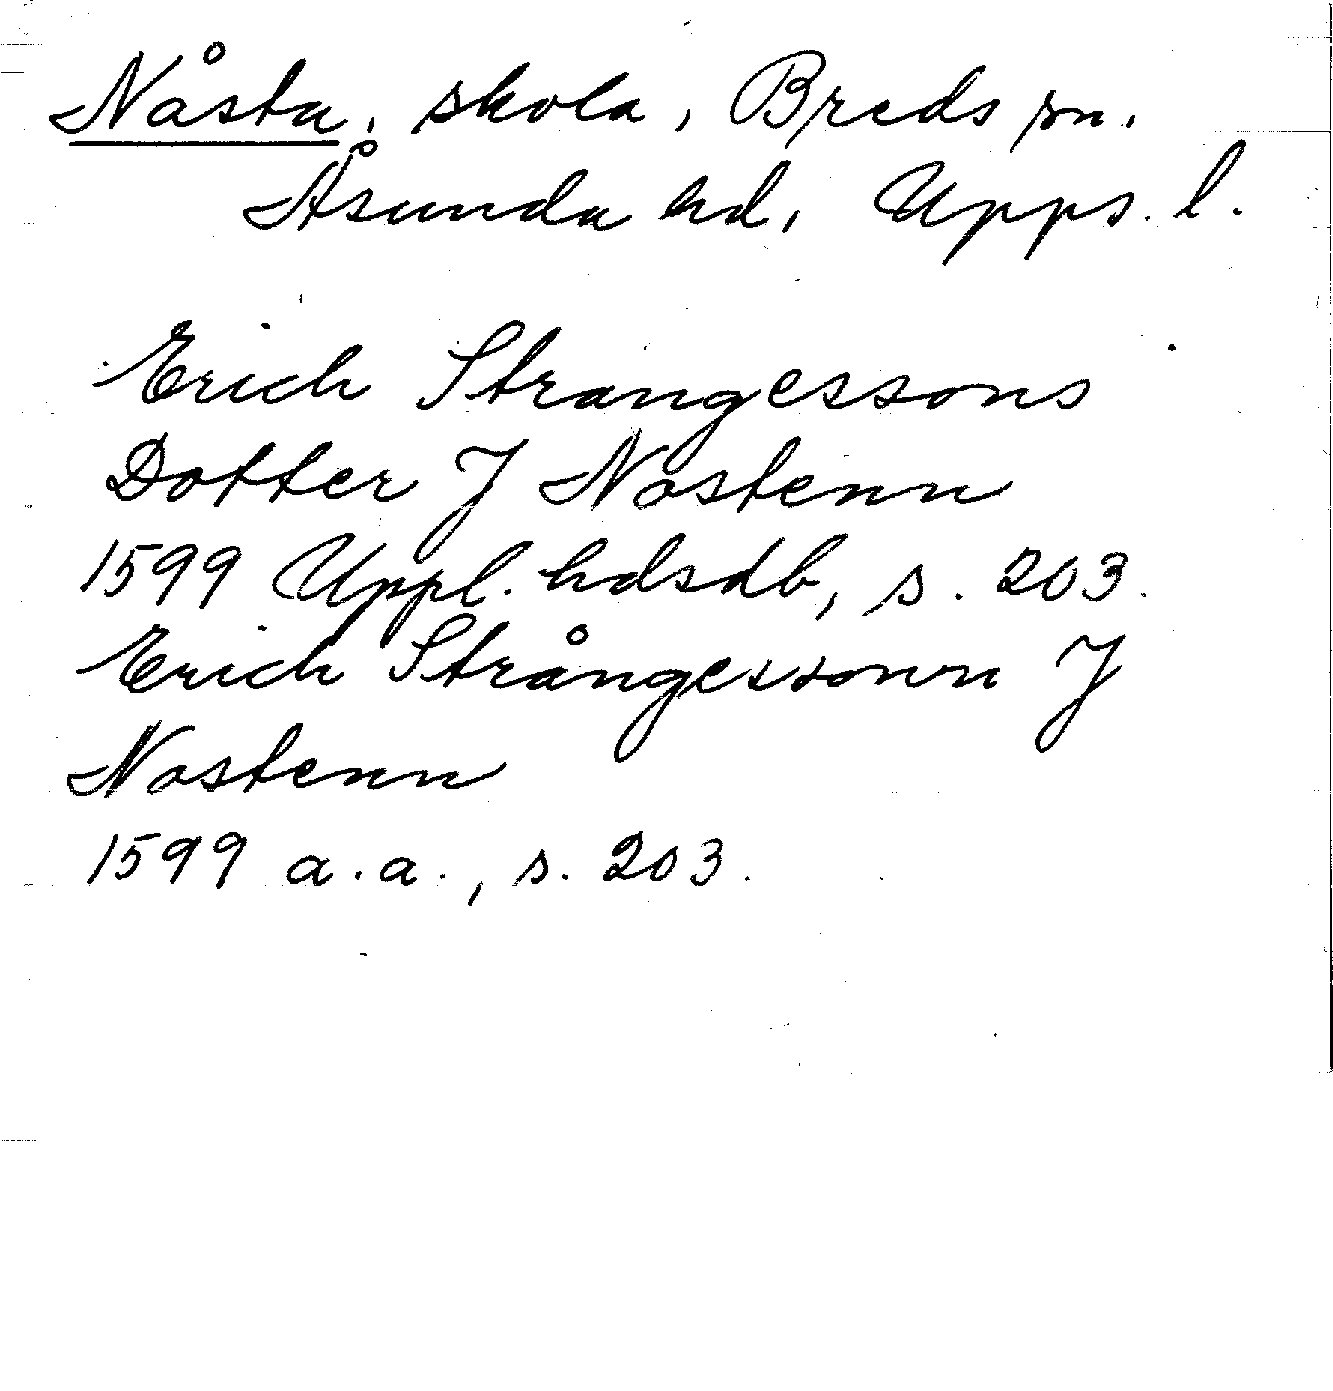 Nåsta, skola, Breds sn.
Åsunda hd, Upps. l.
Erich Strangessons
Dotter J Nostenn
1599 Uppl. hdsdb, s. 203.
Erich Strångessonn J
Nostenn
1599 a.a., s. 203.